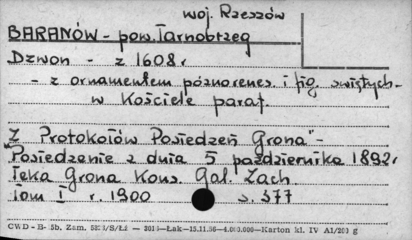 woj. Rzeszów
BARANÓW - pow. Tarnobrzeg
Dzwon - z 1608 r
- z ornamentem późnorenes. i fig. świętych -
w Kościele paraf.
"Z Protokołów Posiedzeń Grona" -
Posiedzenie z dnia 5 października 1892r
Teka Grona Kons. Gal. Zach.
tom I r. 1900 s. 377
CWD - B- 5b. Zam. /S/Łź — Łak—15.11.56—4.000.000—Karton kl. IV A1/200 g